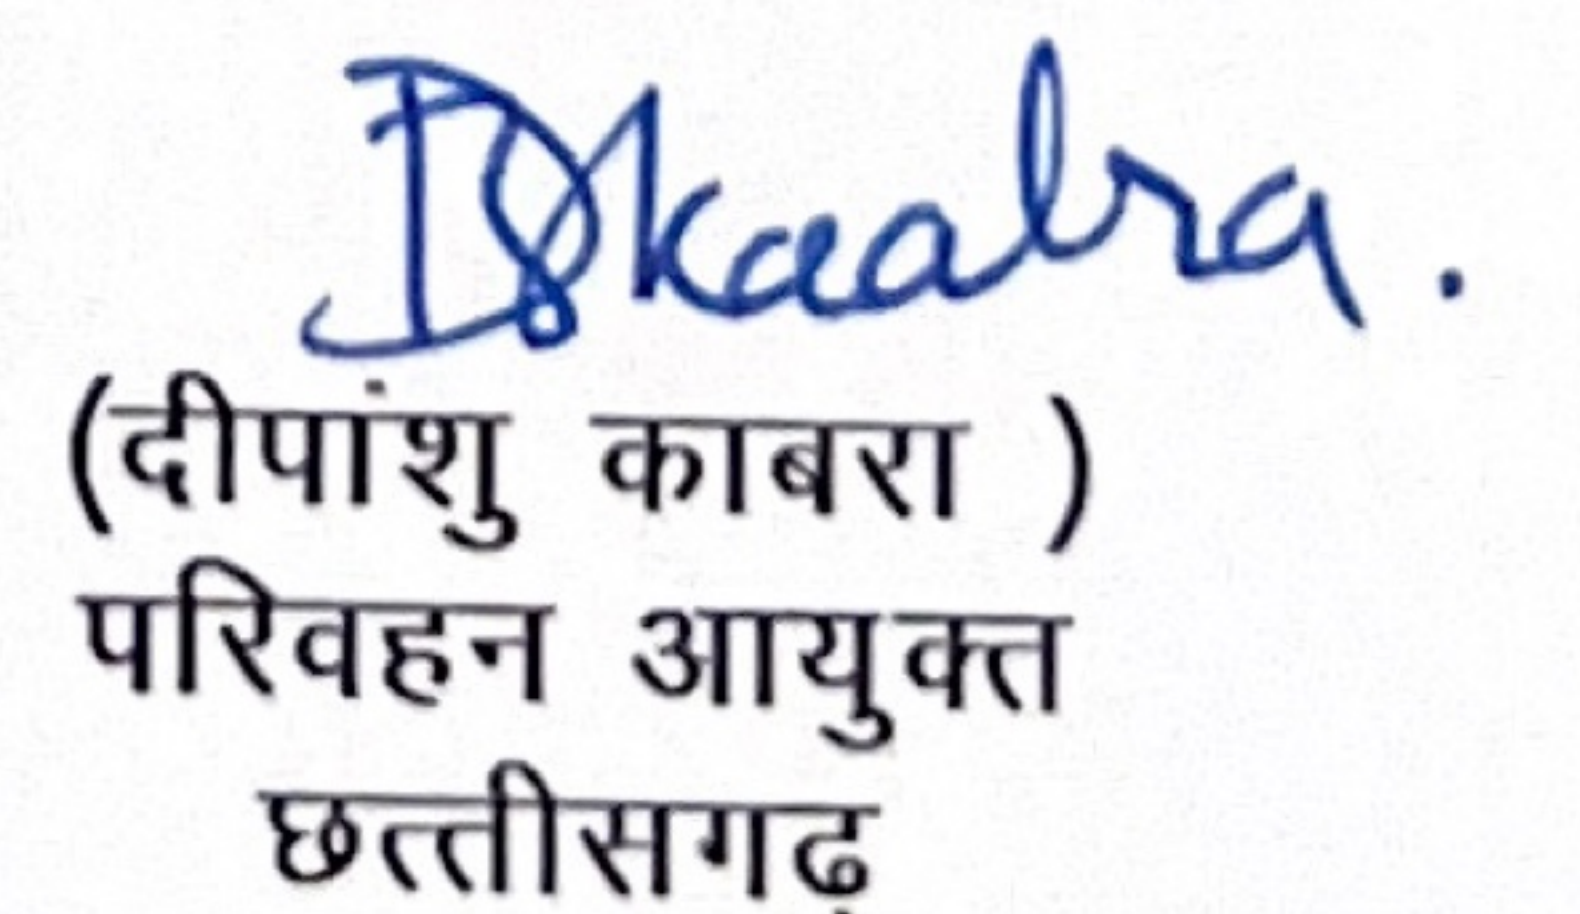 DSKaabra.
(दीपांशु काबरा )
परिवहन आयुक्त
छत्तीसगढ़